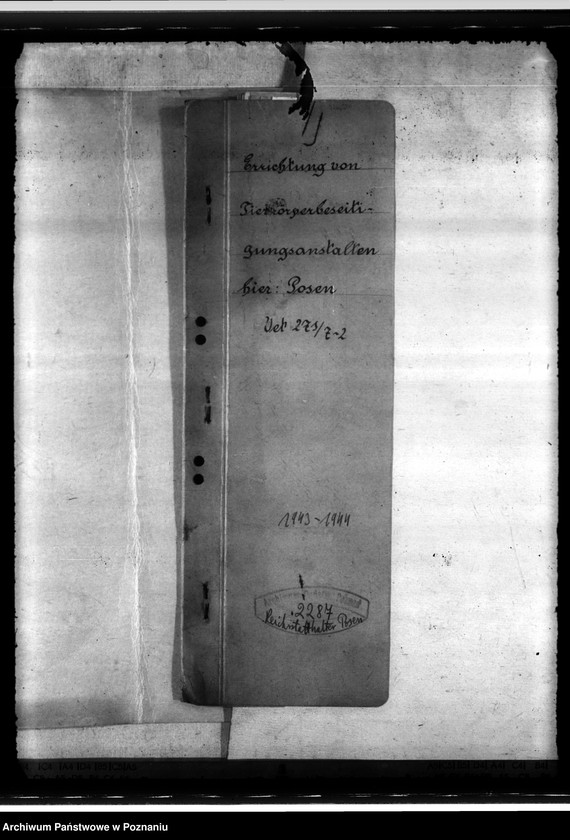 Errichtung von
Tierkörperbeseiti-
gungsanstalten
hier: Posen
Vet 271/7-2
1943-1944
2287
Reichsstatthalter Posen
Archiwum Państwowe w Poznaniu